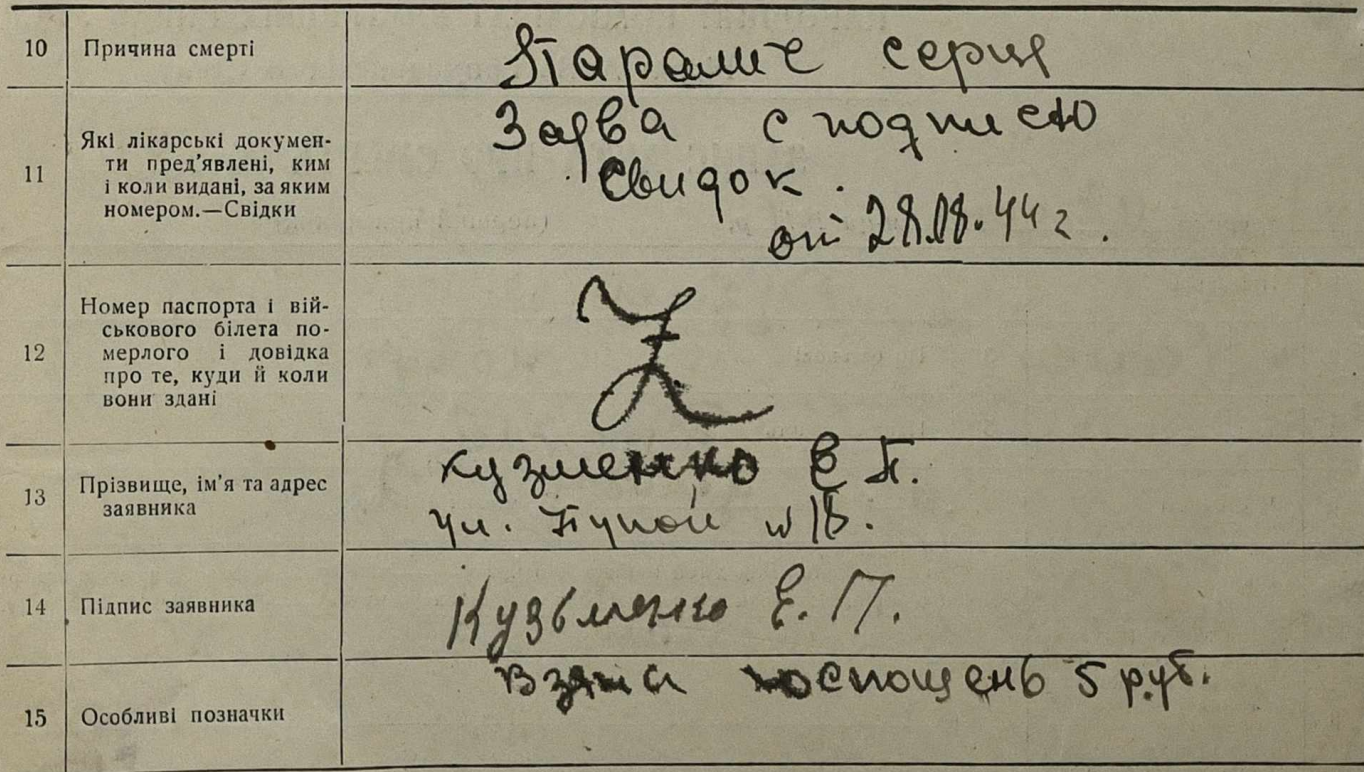 10 Причина смерті Параліч серця
11 Які лікарські докумен-
ти пред'явлені, ким
і коли видані, за яким
номером.—Свідки
Заява с подписею
свидок.
от 28.08.44 г.
12 Номер паспорта і вій-
ськового білета по-
мерлого і довідка
про те, куди й коли
вони здані
Z
13 Прізвище, ім'я та адрес
заявника
Кузменко Е П.
ул. № 18.
14 Підпис заявника Кузьменко Е. П.
15 Особливі позначки
Взята 5 руб.